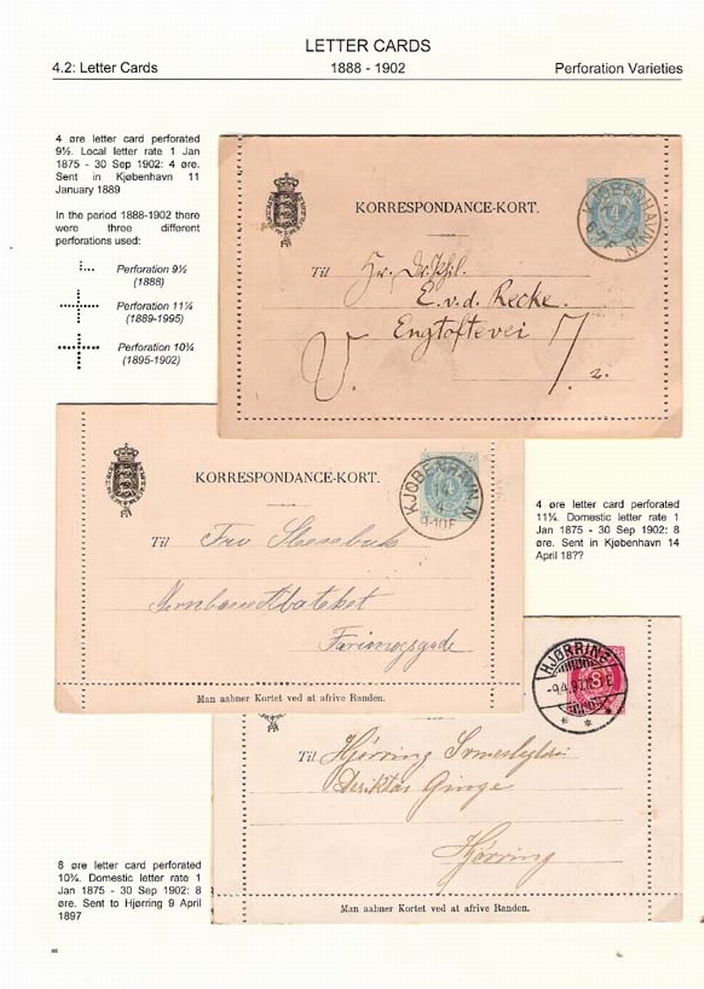 LETTER CARDS
4.2: Letter Cards 1888 - 1902 Perforation Varieties
4 øre letter card perforated
9½. Local letter rate 1 Jan
1875 - 30 Sep 1902: 4 øre.
Sent in Kjøbenhavn 11
January 1889
In the period 1888-1902 there
were three different
perforations used:
Perforation 9½
(1888)
Perforation 11¼
(1889-1995)
Perforation 10¾
(1895-1902)
KORRESPONDANCE-KORT.
KJØBENHAVN.N.
4
Til Hr. Dr. phil.
E. v. d. Recke.
Engtoftevei 17
V. 2.
KORRESPONDANCE-KORT.
KJØBENHAVN.N.
14
4
4
Til Fru
Farimagsgade
Man aabner Kortet ved at afrive Randen.
4 øre letter card perforated
11¼. Domestic letter rate 1
Jan 1875 - 30 Sep 1902: 8
øre. Sent in Kjøbenhavn 14
April 18??
HJØRRING
-9.4.97
8
Til Hjørring
Ginge
Hjørring
Man aabner Kortet ved at afrive Randen.
8 øre letter card perforated
10¾. Domestic letter rate 1
Jan 1875 - 30 Sep 1902: 8
øre. Sent to Hjørring 9 April
1897